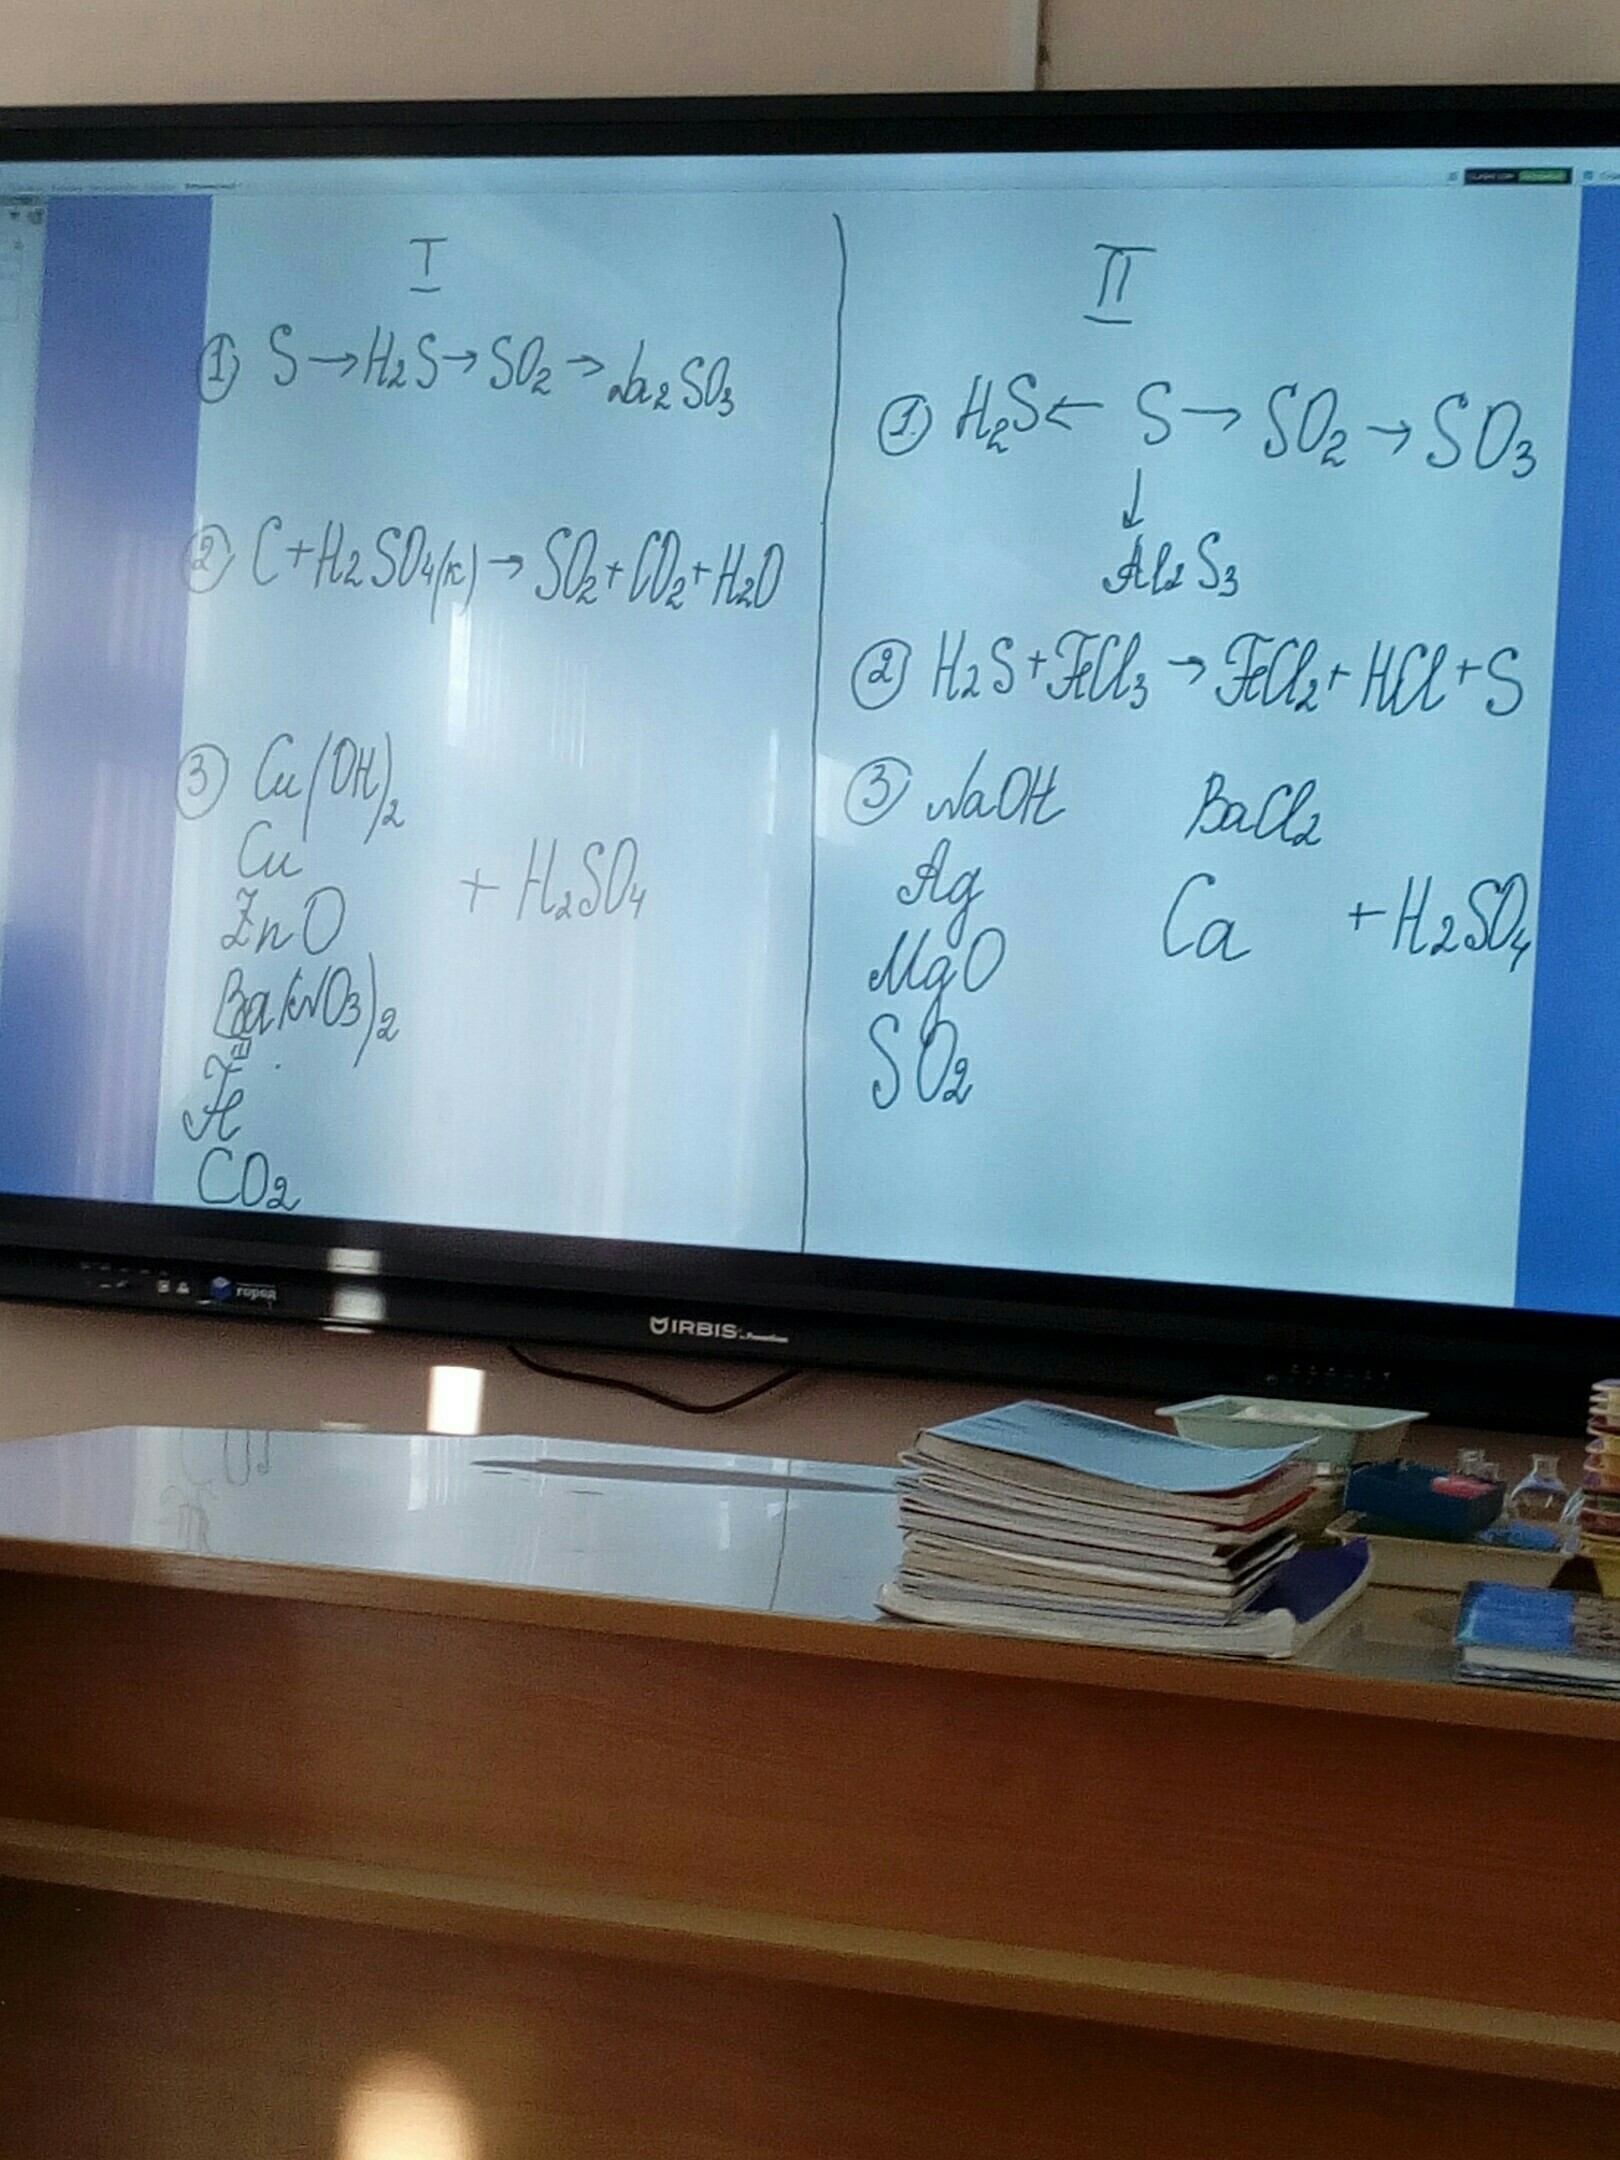 I
① S → H₂S → SO₂ → Na₂SO₃
② C + H₂SO₄(к) → SO₂ + CO₂ + H₂O
③ Cu(OH)₂
Cu
ZnO
+ H₂SO₄
Ba(NO₃)₂
Fe
CO₂
II
① H₂S ← S → SO₂ → SO₃
↓
Al₂S₃
② H₂S + FeCl₃ → FeCl₂ + HCl + S
③ NaOH BaCl₂
Ag
Ca + H₂SO₄
MgO
SO₂
город
IRBIS